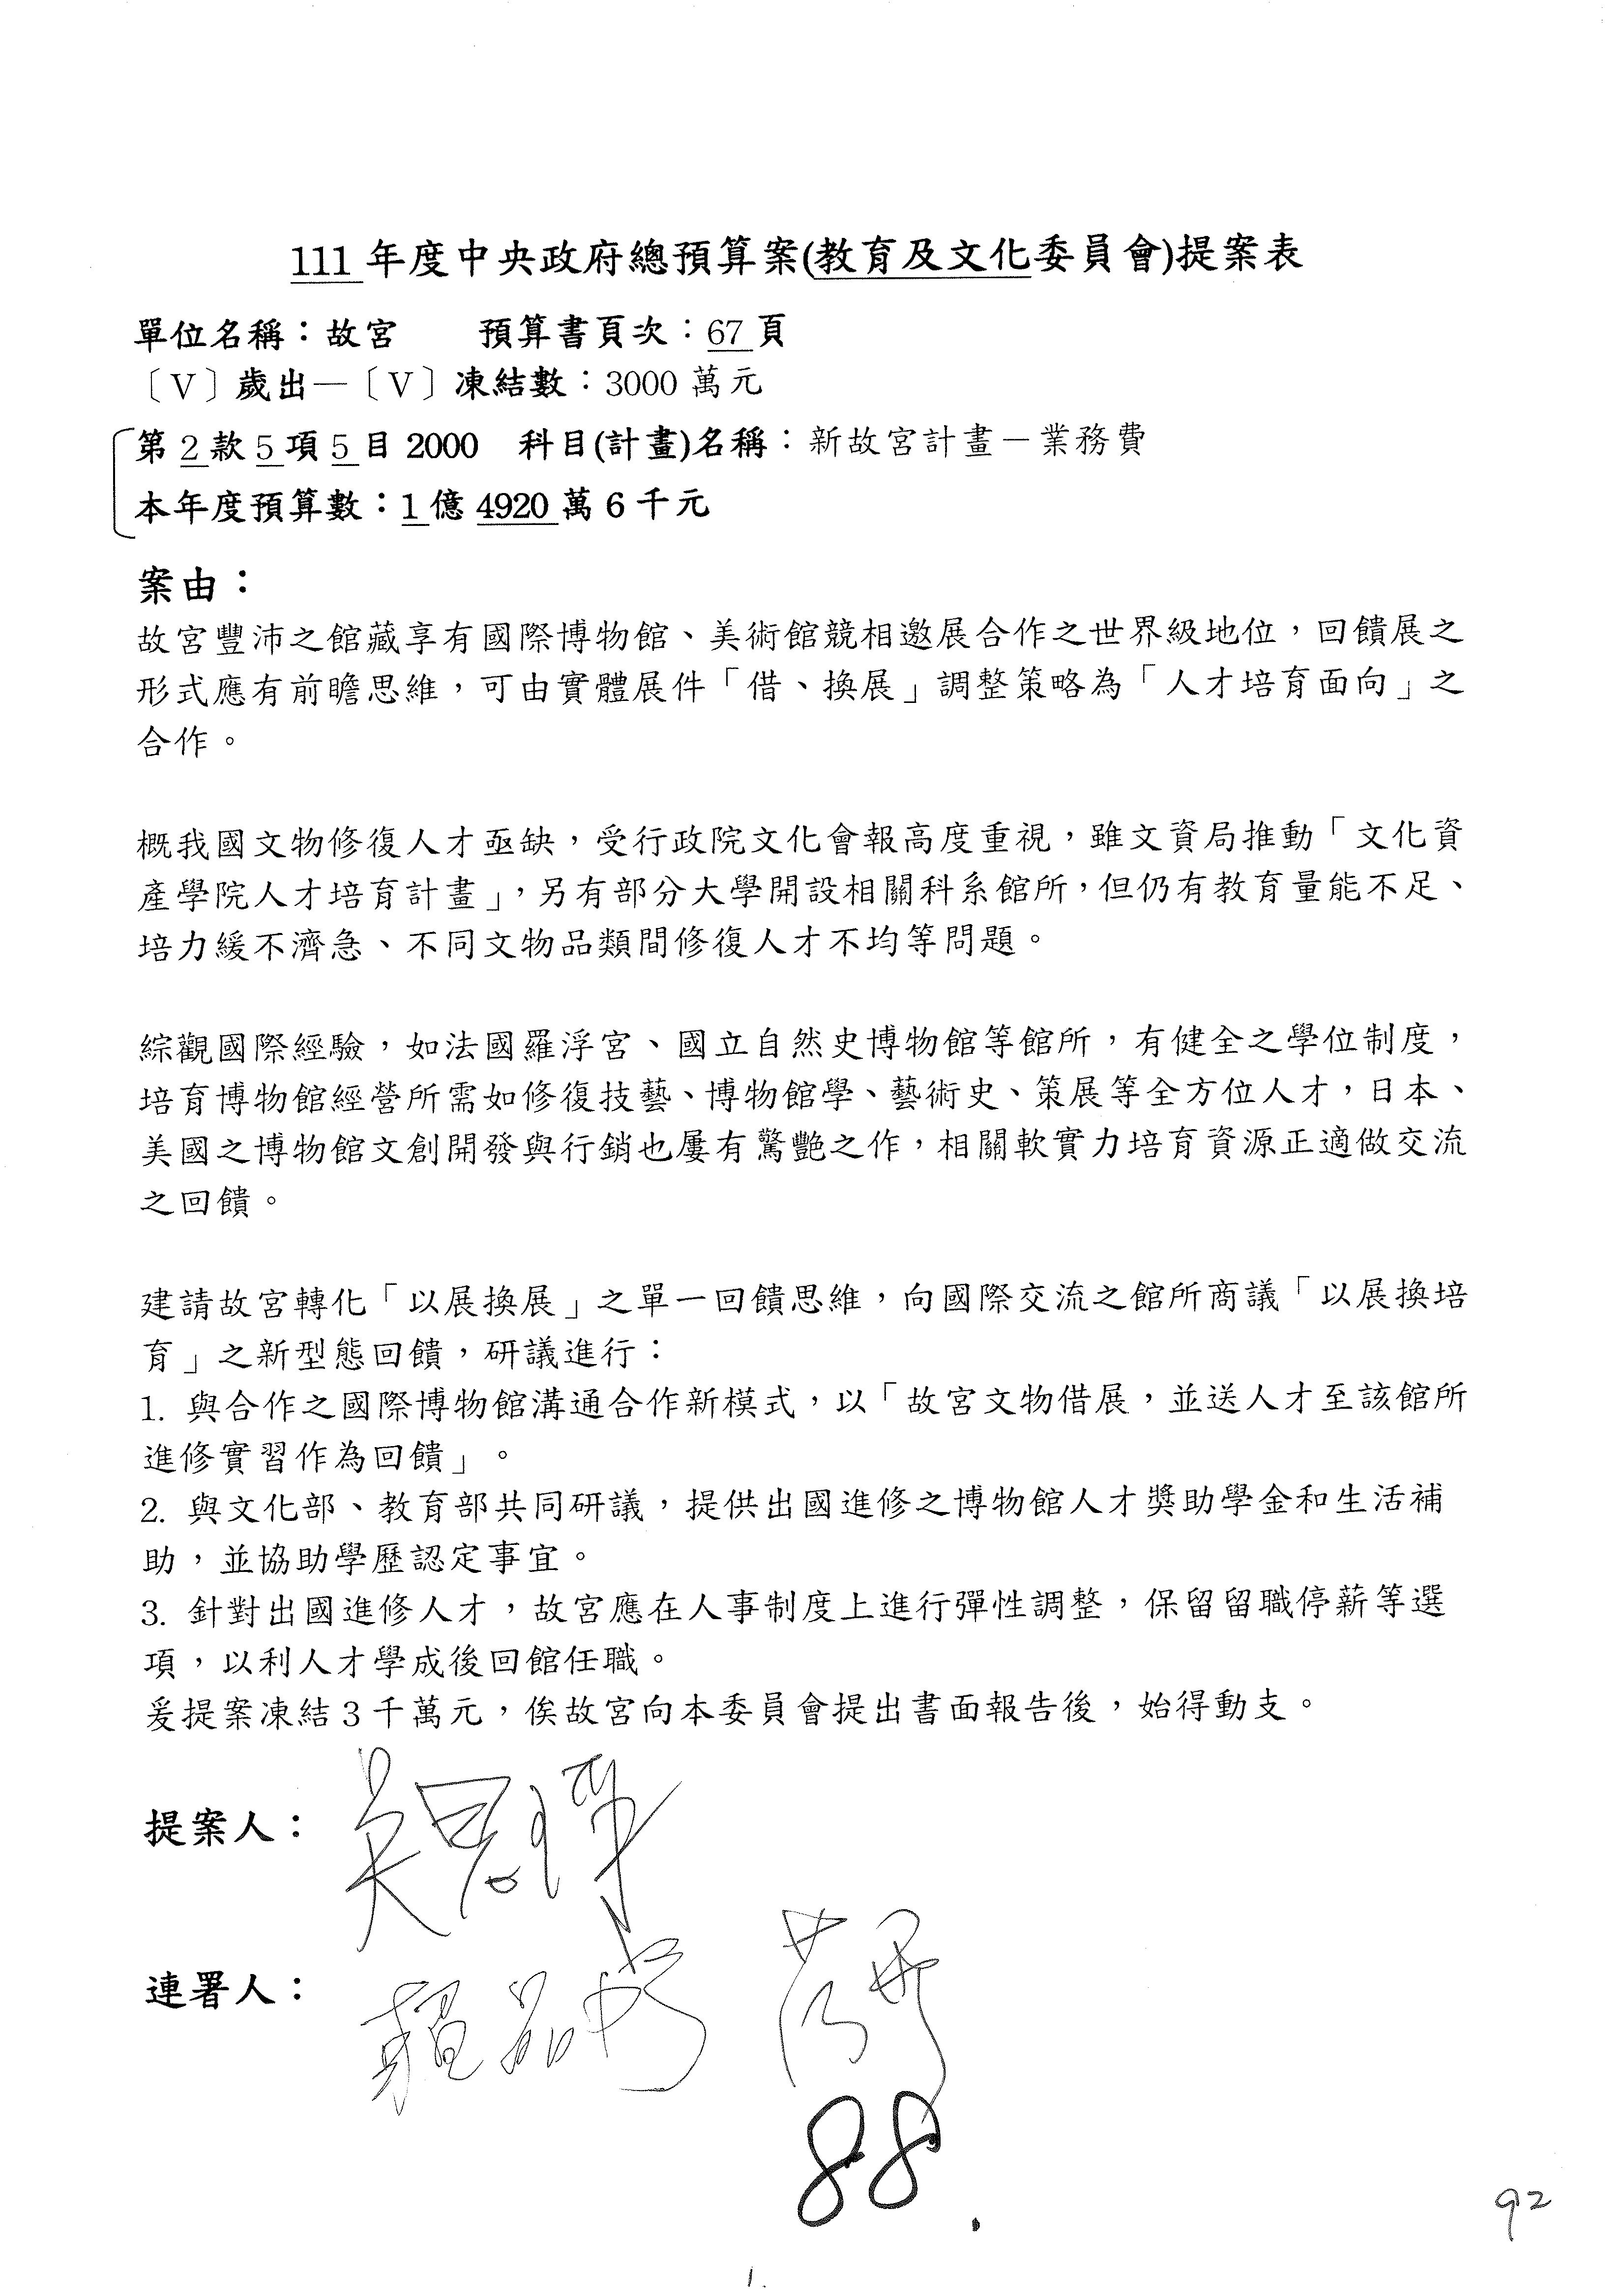 111 年度中央政府總預算案(教育及文化委員會)提案表
單位名稱：故宮　　預算書頁次：67 頁
〔V〕歲出—〔V〕凍結數：3000 萬元
第 2 款 5 項 5 目 2000　科目(計畫)名稱：新故宮計畫－業務費
本年度預算數：1 億 4920 萬 6 千元
案由：
故宮豐沛之館藏享有國際博物館、美術館競相邀展合作之世界級地位，回饋展之
形式應有前瞻思維，可由實體展件「借、換展」調整策略為「人才培育面向」之
合作。
概我國文物修復人才亟缺，受行政院文化會報高度重視，雖文資局推動「文化資
產學院人才培育計畫」，另有部分大學開設相關科系館所，但仍有教育量能不足、
培力緩不濟急、不同文物品類間修復人才不均等問題。
綜觀國際經驗，如法國羅浮宮、國立自然史博物館等館所，有健全之學位制度，
培育博物館經營所需如修復技藝、博物館學、藝術史、策展等全方位人才，日本、
美國之博物館文創開發與行銷也屢有驚艷之作，相關軟實力培育資源正適做交流
之回饋。
建請故宮轉化「以展換展」之單一回饋思維，向國際交流之館所商議「以展換培
育」之新型態回饋，研議進行：
1. 與合作之國際博物館溝通合作新模式，以「故宮文物借展，並送人才至該館所
進修實習作為回饋」。
2. 與文化部、教育部共同研議，提供出國進修之博物館人才獎助學金和生活補
助，並協助學歷認定事宜。
3. 針對出國進修人才，故宮應在人事制度上進行彈性調整，保留留職停薪等選
項，以利人才學成後回館任職。
爰提案凍結 3 千萬元，俟故宮向本委員會提出書面報告後，始得動支。
提案人：
連署人：
88.
92
1.